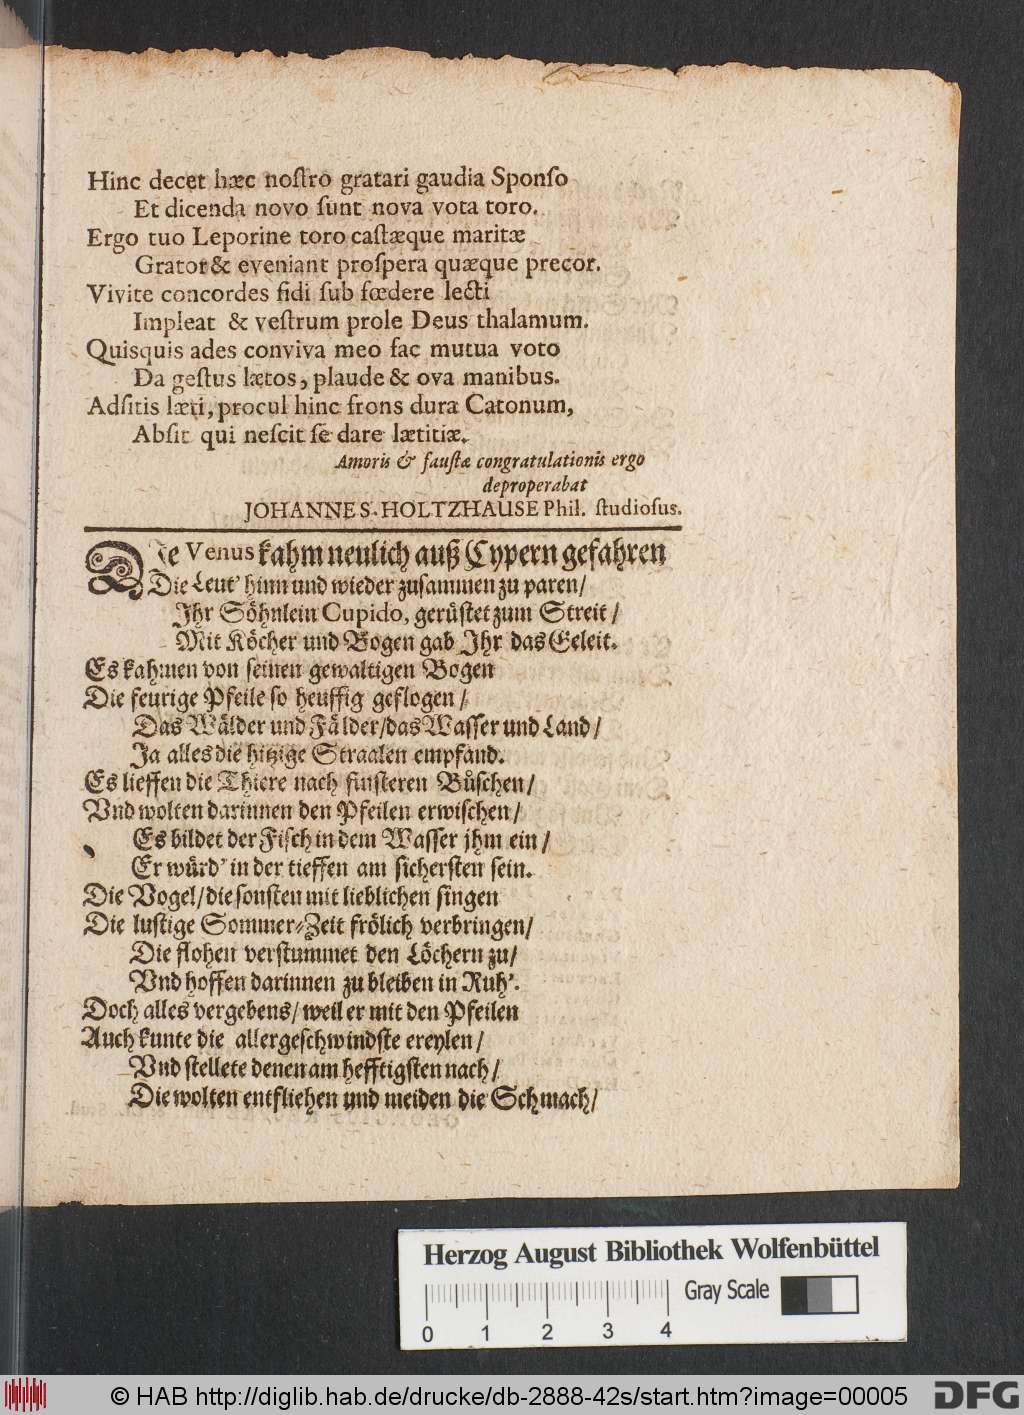 Hinc decet hæc noſtro gratari gaudia Sponſo
Et dicenda novo ſunt nova vota toro.
Ergo tuo Leporine toro caſtæque maritæ
Grator & eveniant proſpera quæque precor.
Vivite concordes fidi ſub fœdere lecti
Impleat & veſtrum prole Deus thalamum.
Quisquis ades conviva meo fac mutua voto
Da geſtus lætos, plaude & ova manibus.
Adſitis læti, procul hinc frons dura Catonum,
Abſit qui neſcit ſe dare lætitiæ.
Amoris & fauſtæ congratulationis ergo
deproperabat
JOHANNES HOLTZHAUSE Phil. ſtudioſus.
Die Venus kahm neulich auß Cypern gefahren
Die Leut' hinn und wieder zuſammen zu paren/
Jhr Söhnlein Cupido, gerüſtet zum Streit/
Mit Köcher und Bogen gab Jhr das Geleit.
Es kahmen von ſeinen gewaltigen Bogen
Die feurige Pfeile ſo heuffig geflogen/
Das Wälder und Fälder/das Waſſer und Land/
Ja alles die hitzige Straalen empfand.
Es lieffen die Thiere nach finſteren Büſchen/
Vnd wolten darinnen den Pfeilen erwiſchen/
Es bildet der Fiſch in dem Waſſer jhm ein/
Er würd' in der tieffen am ſicherſten ſein.
Die Vogel/die ſonſten mit lieblichen ſingen
Die luſtige Sommer-Zeit frölich verbringen/
Die flohen verſtummet den Löchern zu/
Vnd hoffen darinnen zu bleiben in Ruh'.
Doch alles vergebens/weil er mit den Pfeilen
Auch kunte die allergeſchwindſte ereylen/
Vnd ſtellete denen am hefftigſten nach/
Die wolten entfliehen und meiden die Schmach/
Herzog August Bibliothek Wolfenbüttel
Gray Scale
0 1 2 3 4
© HAB http://diglib.hab.de/drucke/db-2888-42s/start.htm?image=00005
DFG